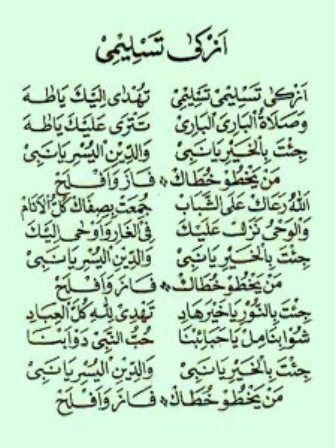 اَزْكٰى تَسْلِيْمِيْ
اَزْكٰى تَسْلِيْمِيْ تَسْلِيْمِيْ تُهْدٰى اِلَيْكَ يَاطٰهَ
وَصَلَاةُ الْبَارِئِ الْبَارِئْ تَتْرَى عَلَيْكَ يَاطٰهَ
جِئْتَ بِالْخَيْرِ يَانَبِيْ وَالدِّيْنِ الْيُسْرِ يَانَبِيْ
مَنْ يَخْطُوْ خُطَاكْ فَازَ وَاَفْلَحَ
اَللهُ رَعَاكَ عَلَى الشَّبَابْ جُمِعَتْ بِصِفَاكَ كُلُّ الْأَنَامْ
وَالْوَحْيُ نَزَلَ عَلَيْكَ فِى الْغَارِ وَاَوْحٰى اِلَيْكَ
جِئْتَ بِالْخَيْرِ يَانَبِيْ وَالدِّيْنِ الْيُسْرِ يَانَبِيْ
مَنْ يَخْطُوْ خُطَاكْ فَازَ وَاَفْلَحَ
جِئْتَ بِالنُّوْرِ يَاخَيْرَ هَادِ تَهْدِيْ لِلّٰهِ كُلَّ الْعِبَادِ
يَاحَبَائِبْنَا حُبُّ النَّبِيْ دَوَابْنَا
جِئْتَ بِالْخَيْرِ يَانَبِيْ وَالدِّيْنِ الْيُسْرِ يَانَبِيْ
مَنْ يَخْطُوْ خُطَاكْ فَازَ وَاَفْلَحَ